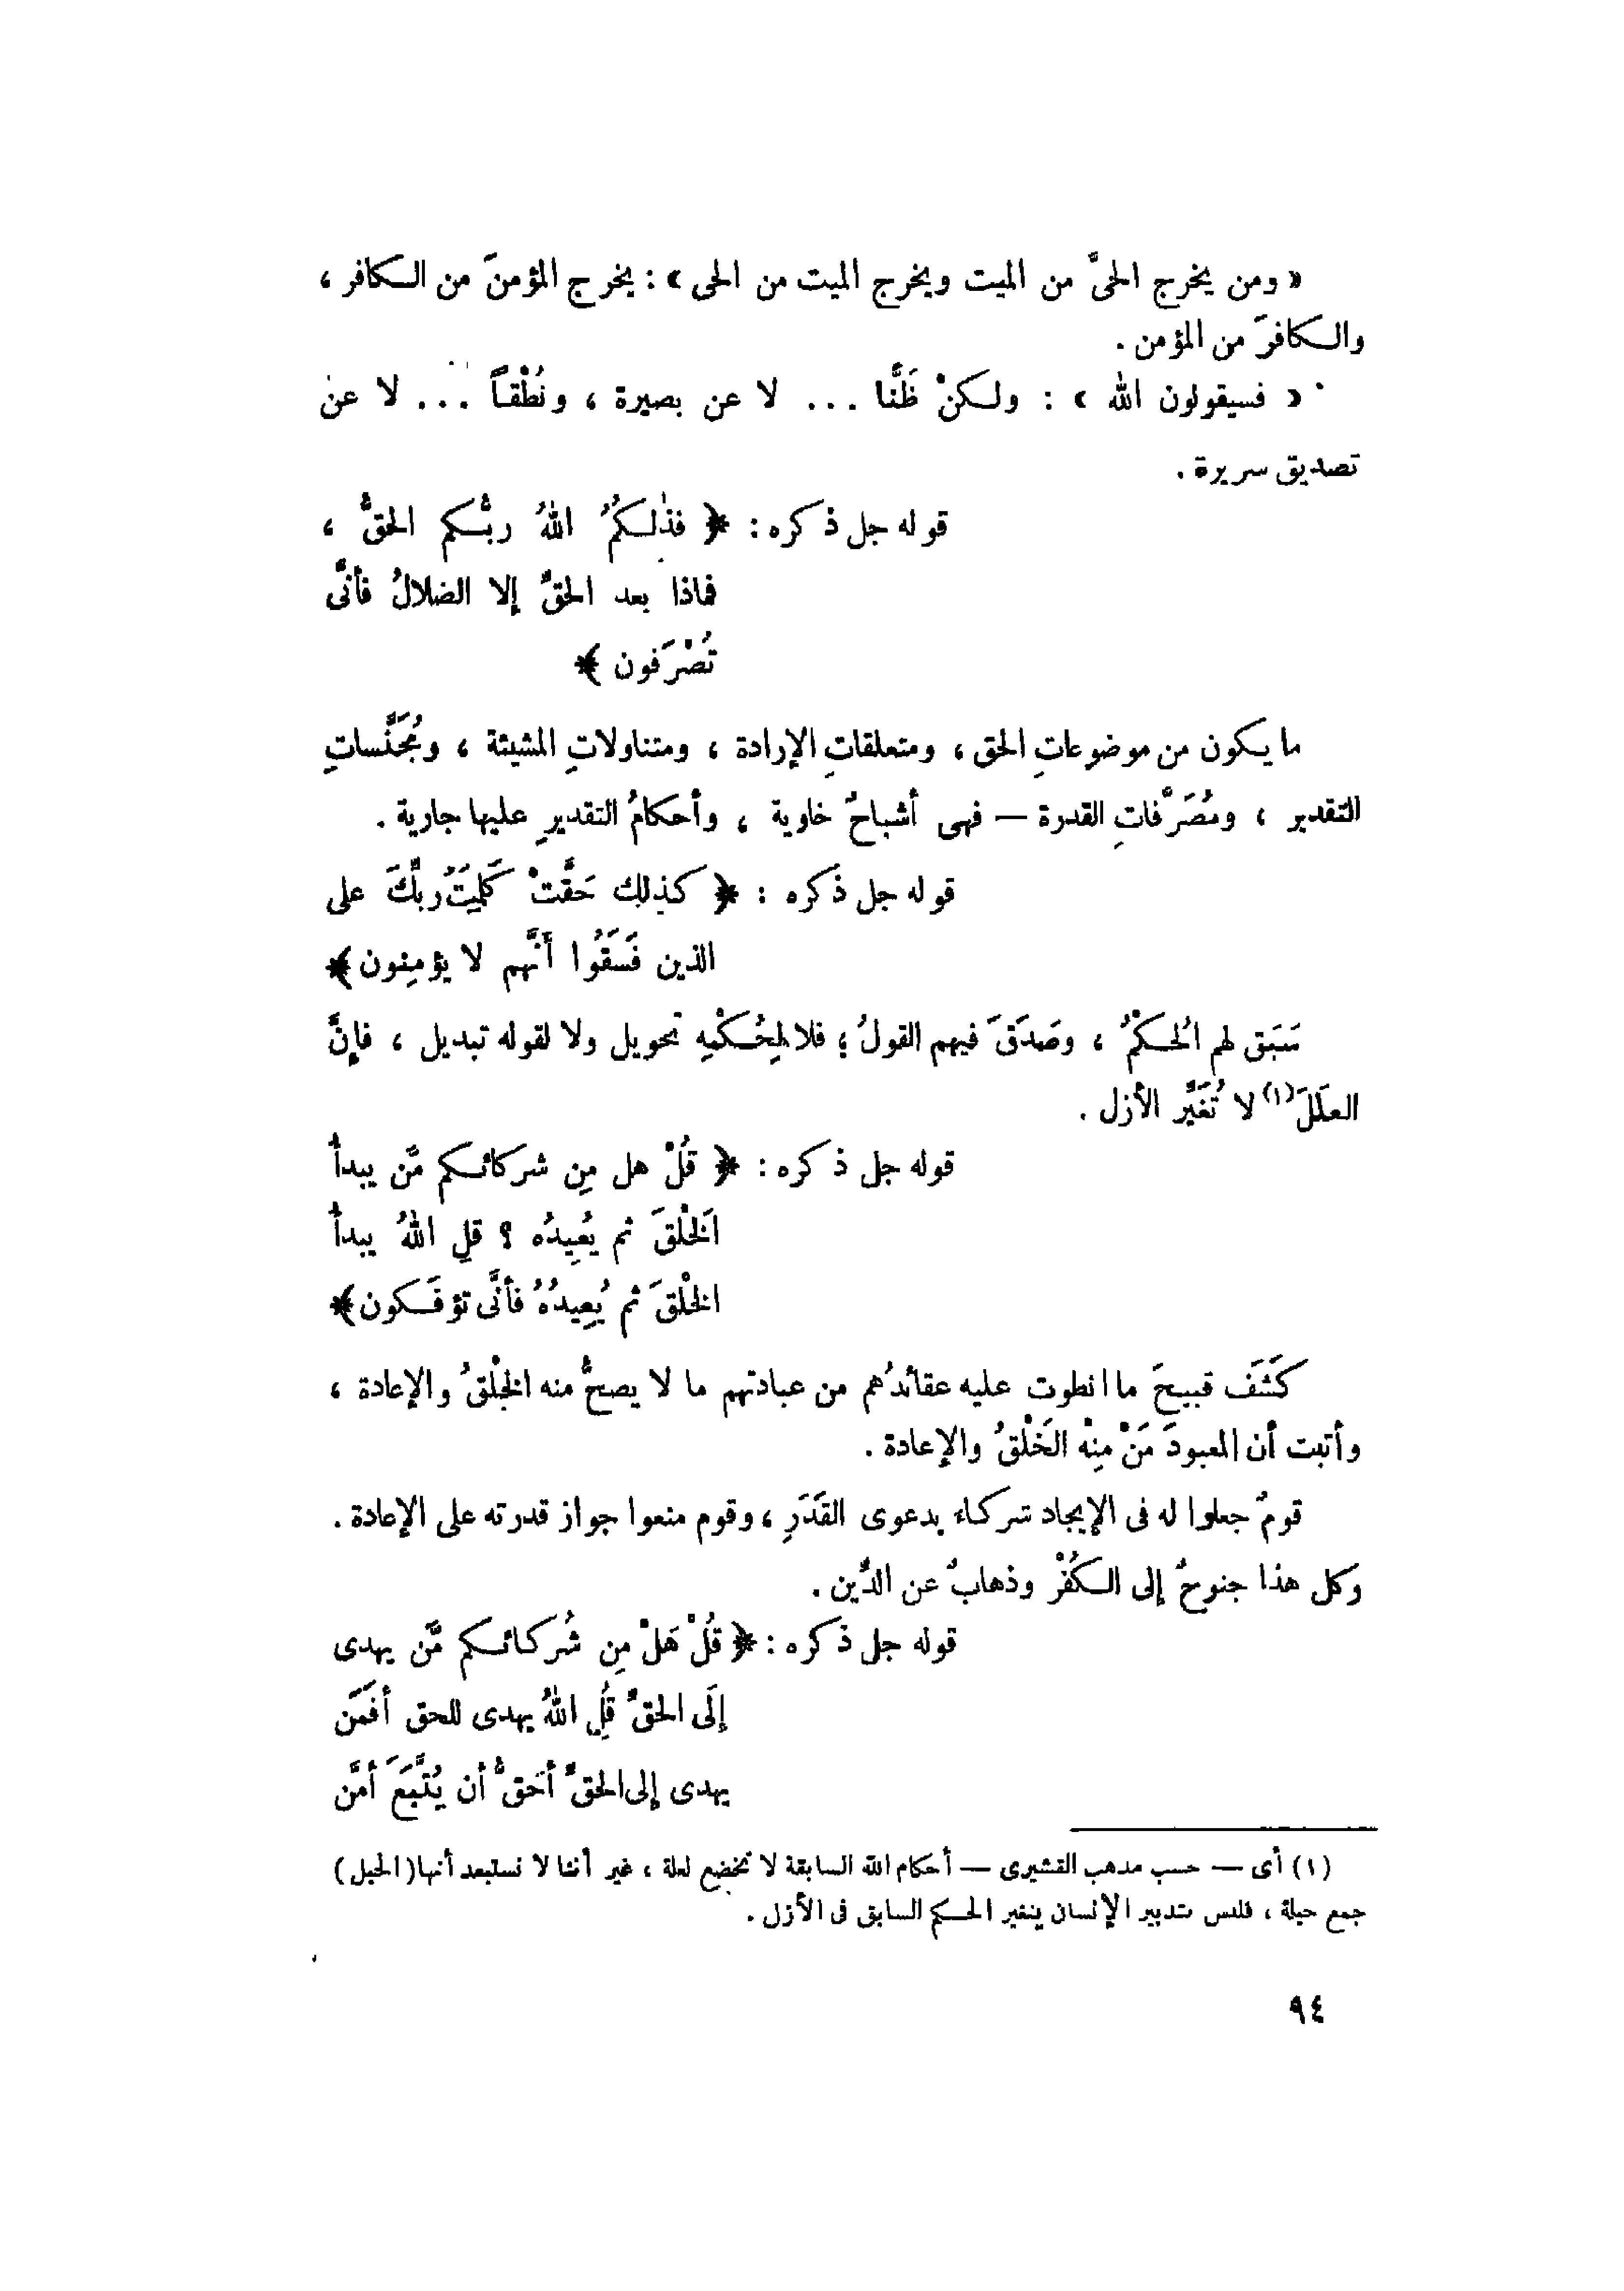 « ومن يخرج الحىَّ من الميت ويخرج الميت من الحى » : يخرج المؤمنَ من الكافر ،
والكافرَ من المؤمن .
« فسيقولون الله » : ولكنْ ظَنًّا ... لا عن بصيرة ، ونُطْقاً ... لا عن
تصديق سريرة .
قوله جل ذكره : ﴿ فذٰلكمُ اللهُ ربُّكم الحقُّ ،
فماذا بعد الحقِّ إلا الضلالُ فأنَّى
تُصْرَفون ﴾
ما يكون من موضوعاتِ الحق ، ومتعلقاتِ الإرادة ، ومتناولاتِ المشيئة ، ومُجَنَّساتِ
التقدير ، ومُصَرَّفاتِ القدرة — فهى أشباحٌ خاوية ، وأحكامُ التقديرِ عليها جارية .
قوله جل ذكره : ﴿ كذلِك حَقَّتْ كَلِمَتُ ربِّكَ على
الذين فَسَقُوا أَنَّهم لا يؤمِنون ﴾
سَبَق لهم الحُكْمُ ، وصَدَقَ فيهم القولُ ؛ فلا لِحُكْمِه تحويل ولا لقوله تبديل ، فإنَّ
العلَلَ(١) لا تُغَيِّر الأزل .
قوله جل ذكره : ﴿ قُلْ هل مِن شركائكم مَّن يبدأُ
الخَلْقَ ثم يُعِيدُه ؟ قلِ اللهُ يبدأُ
الخلْقَ ثم يُعِيدُهُ فأنَّى تؤفَكون ﴾
كَشَفَ قبيحَ ما انطوت عليه عقائدُهم من عبادتهم ما لا يصحُّ منه الخَلْقُ والإعادة ،
وأثبت أن المعبودَ مَنْ مِنْه الخَلْقُ والإعادة .
قومٌ جعلوا له فى الإيجاد شركاء بدعوى القَدَرِ ، وقوم منعوا جواز قدرته على الإعادة .
وكل هذا جنوحٌ إلى الكُفْر وذهابٌ عن الدِّين .
قوله جل ذكره : ﴿ قُلْ هَلْ مِن شُركائكم مَّن يهدى
إلَى الحقِّ قُلِ اللهُ يهدى للحق أفَمَن
يهدى إلى الحقِّ أحَقُّ أن يُتَّبَعَ أمَّن
(١) أى — حسب مذهب القشيرى — أحكام الله السابقة لا تخضع لعلة ، غير أننا لا نستبعد أنها (الحيل)
جمع حيلة ، فليس بتدبير الإنسان يتغير الحكم السابق فى الأزل .
٩٤